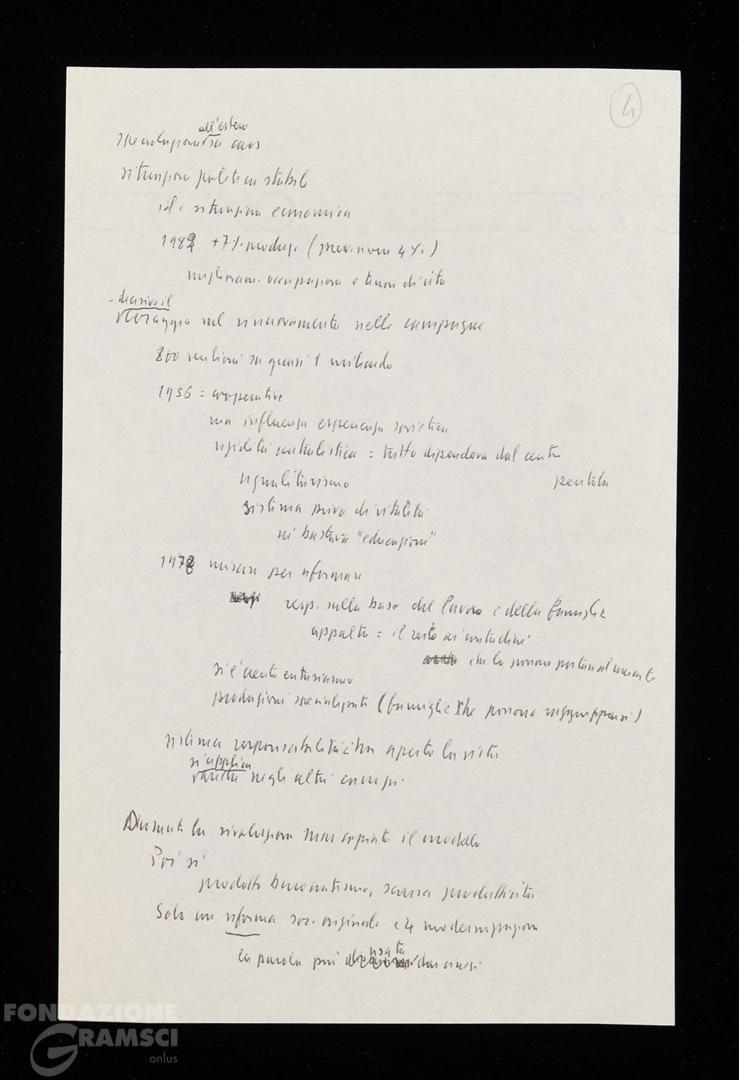 4
all'estero
situazione politica stabile
id. situazione economica
1982 +7% produz. (previsioni 4%)
miglioram. occupazione e tenore di vita
decisivo il
sul rinnovamento nelle campagne
800 milioni su quasi 1 miliardo
1956 = cooperative
ma influenza esperienza sovietica
rigidità centralistica = tutto dipendeva dal centro
egualitarismo
pentola
sistema privo di vitalità
né bastava "educazione"
1978 misure per riformare
resp. sulla base del lavoro e della famiglia
appalto = il resto ai contadini
che lo possono portare al mercato
si è creato entusiasmo
produzioni specializzate (famiglie che possono raggrupparsi)
sistema responsabilità ci ha aperto la vista
si applica
anche negli altri campi.
Durante la rivoluzione mai copiato il modello
Poi sì
prodotto burocratismo, scarsa produttività
Solo un riforma soc. originale e 4 modernizzazioni
la parola più usata dai cinesi
FONDAZIONE
GRAMSCI
onlus